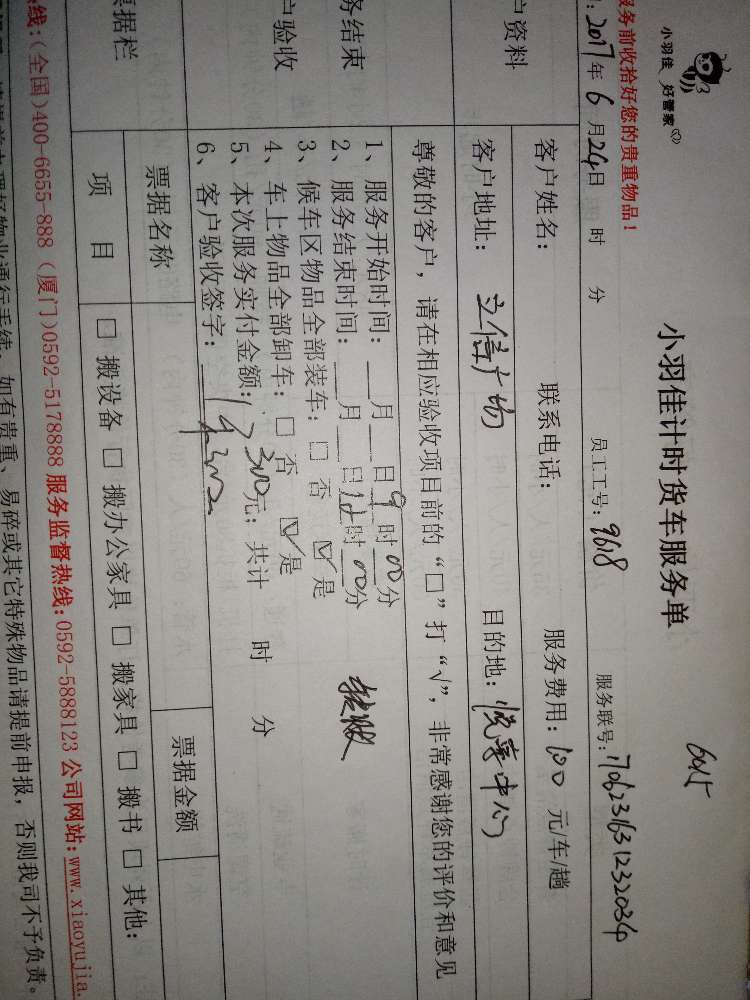 小羽佳 好管家
6015
小羽佳计时货车服务单
服务前收拾好您的贵重物品!
员工工号: 9618
服务联号: 1706231631232034
2017年6月24日 时 分
户资料
客户姓名: 联系电话: 服务费用: 100 元/车/趟
客户地址: 立信广场 目的地: 悦享中心
尊敬的客户, 请在相应验收项目前的“□”打“√”, 非常感谢您的评价和意见
务结束
户验收
1、服务开始时间: 月 日 9时00分
2、服务结束时间: 月 日12时00分
3、候车区物品全部装车: □ 否 ☑ 是
4、车上物品全部卸车: □ 否 ☑ 是
5、本次服务实付金额: 300元; 共计 时 分
6、客户验收签字:
据栏
票据名称 票据金额
项 目 □ 搬设备 □ 搬办公家具 □ 搬家具 □ 搬书 □ 其他:
线:(全国)400-6655-888 (厦门)0592-5178888 服务监督热线:0592-5888123 公司网站:www.xiaoyujia.
请提前办理好物业通行手续。如有贵重、易碎或其它特殊物品请提前申报, 否则我司不予负责。